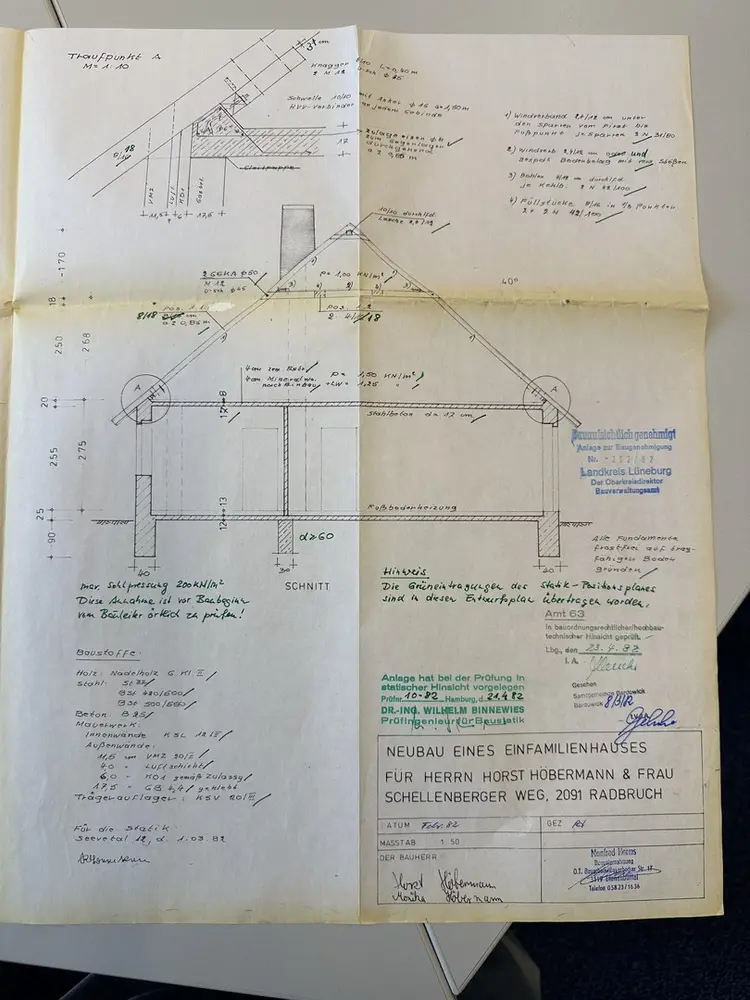 Traufpunkt A
M= 1:10
3 cm
Knagge
2 M 12
Schwelle 10/10
HVV-Verbinder
L= 0,40m
mit Anker ϕ 16 a= 1,50m
Zulageeisen
durchgehend
a ≥ 0,86 m
17
18
8/14
VMZ
Luft
KD1
Gasbet.
11,5
4
6
17,5
1) Windverband 2,4/12 cm unter
den Sparren vom First bis
Fußpunkt je Sparren 2 N 31/80
2) Windverb
gespdt. Bodenbelag mit vers. Stößen
3) Bohlen 6/18 cm durchlfd.
je Kehlb. 2 N 42/100
4) Füllstücke 8/16 in 1/3 Punkten
2 x 2 N 42/100
10/10 durchlfd.
Lasche
2 GEKA ϕ 50
M 12
p= 1,00 KN/m²
40°
Pos. 1.1
8/18 cm
a ≥ 0,86m
Pos. 1.2
18
170
18
250
268
20
255
275
25
90
A
A
4 cm zem. Estr.
4 cm Mineralwo.
nach Einbau
p = 1,50 KN/m²
+LW= 1,25 "
Stahlbeton d= 17 cm
Fußbodenheizung
12
13
d≥60
40
30
40
SCHNITT
Bauaufsichtlich genehmigt
Anlage zur Baugenehmigung
Nr.
Landkreis Lüneburg
Der Oberkreisdirektor
Bauverwaltungsamt
Alle Fundamente
frostfrei auf trag-
fähigen Boden
gründen
max Sohlpressung 200KN/m²
Diese Annahme ist vor Baubeginn
vom Bauleiter örtlich zu prüfen!
Hinweis
Die Grüneintragungen des Statik-Positionsplanes
sind in diesen Entwurfsplan übertragen worden.
Amt 63
In bauordnungsrechtlicher/hochbau-
technischer Hinsicht geprüft.
Lbg., den 23.4.82
I. A.
Baustoffe:
Holz: Nadelholz G. Kl. II
Stahl: St 37
BSt 420/500
BSt 500/550
Beton: B 25
Mauerwerk:
Innenwände KSL 12/II
Außenwände:
11,5 cm VMZ 20/II
4,0 " Luftschicht
6,0 " KD1 gemäß Zulassg
17,5 " GB 4,4 geklebt
Trägerauflager: KSV 20/II
Für die Statik:
Seevetal 12, d. 1.03.82
Anlage hat bei der Prüfung in
statischer Hinsicht vorgelegen
Prüfnr. 10-82 Hamburg, d. 21.4.82
DR.-ING. WILHELM BINNEWIES
Prüfingenieur für Baustatik
Gesehen
Samtgemeinde Bardowick
Bardowick 8/3/82
NEUBAU EINES EINFAMILIENHAUSES
FÜR HERRN HORST HÖBERMANN & FRAU
SCHELLENBERGER WEG, 2091 RADBRUCH
ATUM Febr. 82
GEZ
MASSTAB 1:50
DER BAUHERR
Horst Höbermann
Monika Höbermann
Manfred Herns
Telefon 05823/1636